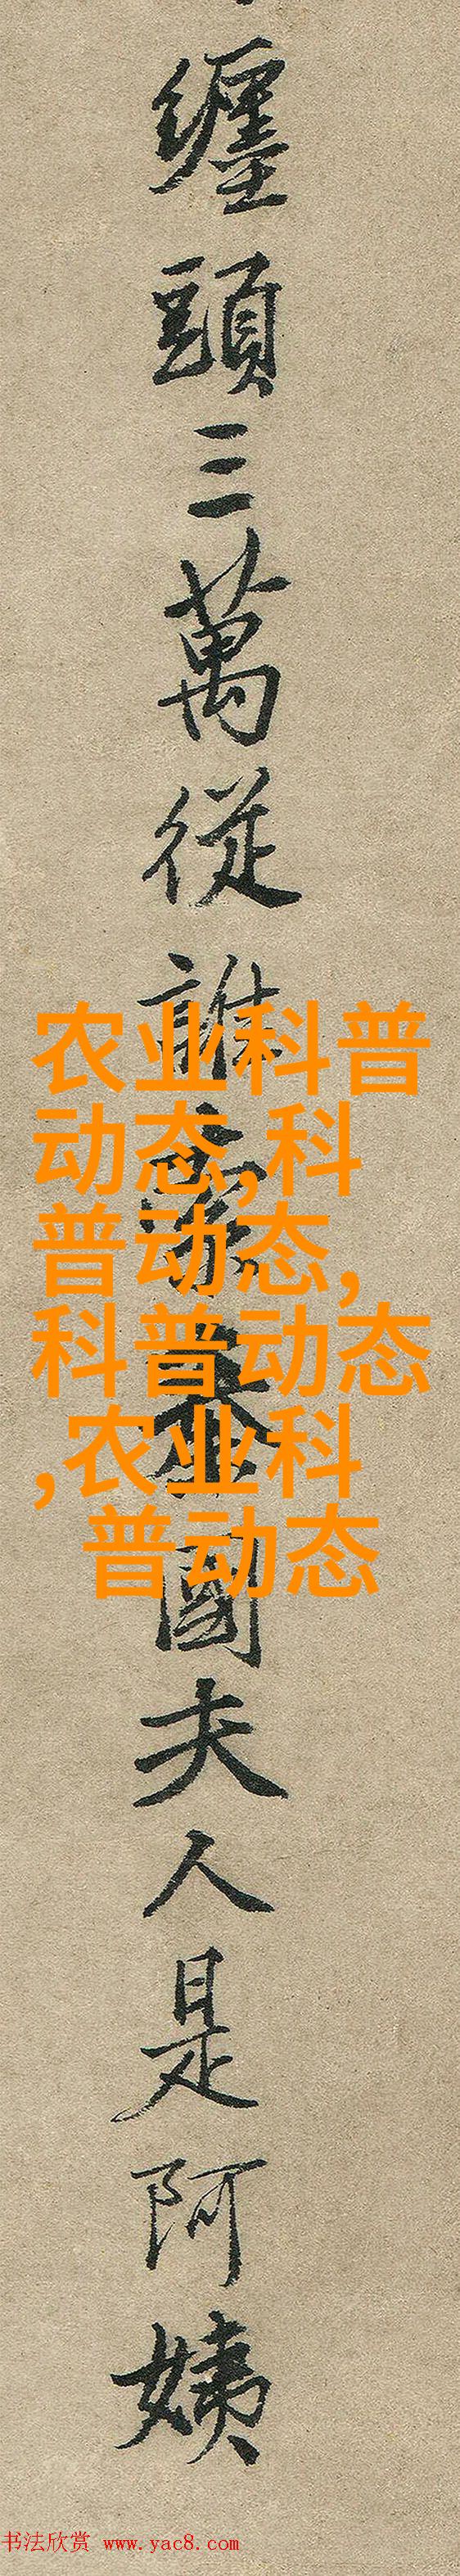 纏頭三萬從誰索秦國夫人是阿姨
农业科普
动态,科
普动态,
科普动态
,农业科
普动态
书法欣赏 www.yac8.com